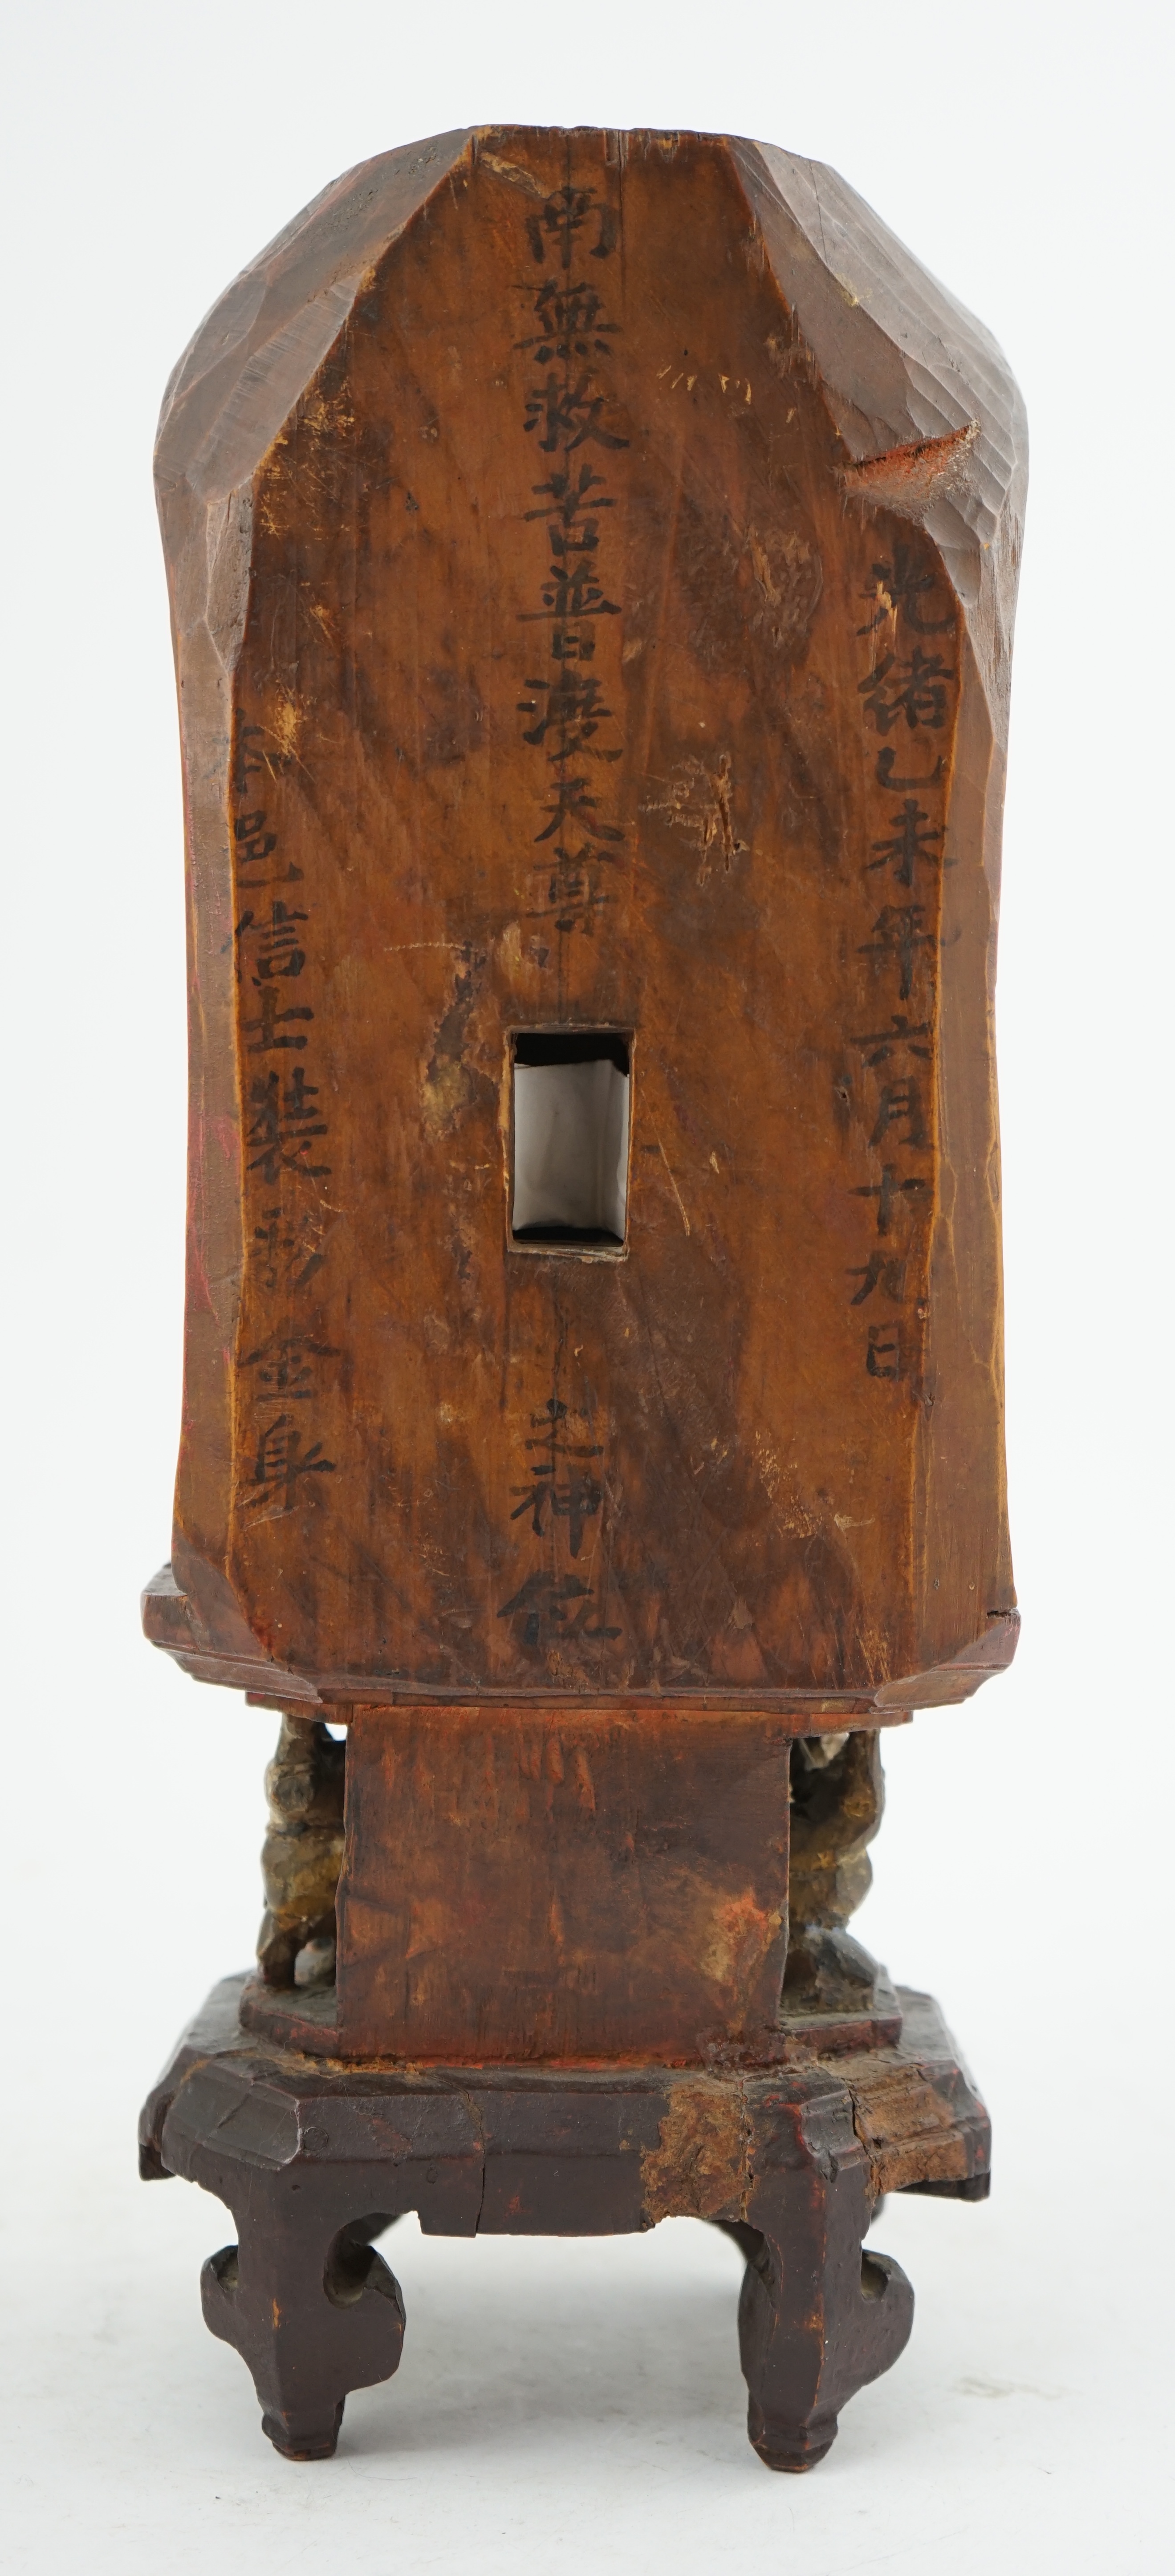 光緒乙未年六月十九日
南無救苦普渡天尊之神位
本邑信士裝彩金身